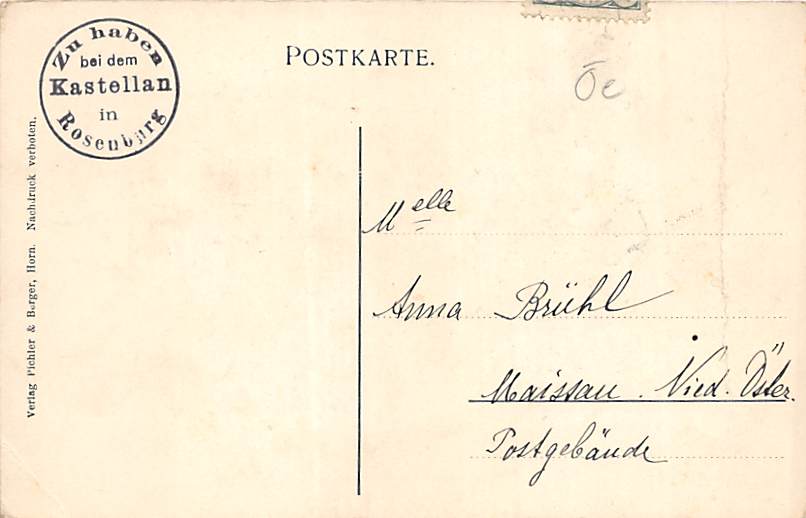 Zu haben
bei dem
Kastellan
in
Rosenburg
POSTKARTE.
Oe
Verlag Pichler & Berger, Horn. Nachdruck verboten.
Melle
Anna Brühl
Maissau. Nied. Öster.
Postgebäude